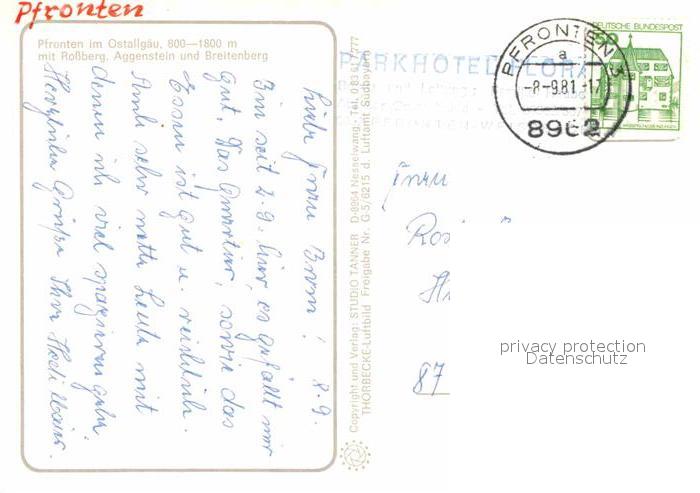 Pfronten
Pfronten im Ostallgäu, 800—1800 m
mit Roßberg, Aggenstein und Breitenberg
Liebe Frau Brem! 8.9.
Bin seit 2.9. hier es gefällt mir
gut. Das Quartier, sowie das
Essen ist gut u. reichlich.
Auch sehr nette Leute mit
denen ich viel spazieren gehe.
Herzliche Grüße Ihre Hedi
Copyright und Verlag: STUDIO TANNER D-8964 Nesselwang, Tel. 083 61/777
THORBECKE-Luftbild Freigabe Nr. G-5/6215 d. Luftamt Südbayern
PARKHOTEL FLORA
PFRONTEN
a
-8-9.81-17
8962
DEUTSCHE BUNDESPOST
Frau
Rosi
87
privacy protection
Datenschutz